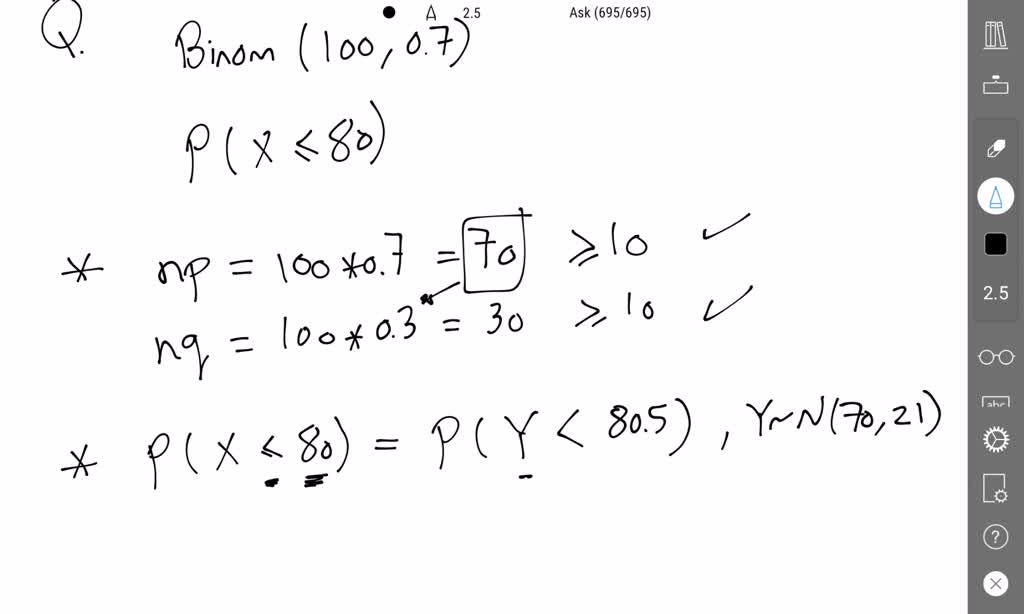 2.5 Ask (695/695)
Q. Binom (100, 0.7)
P(X ≤ 80)
* np = 100 * 0.7 = 70 ≥ 10 ✓
nq = 100 * 0.3 = 30 ≥ 10 ✓
* P(X ≤ 80) = P(Y < 80.5), Y~N(70, 21)
2.5
abc
?